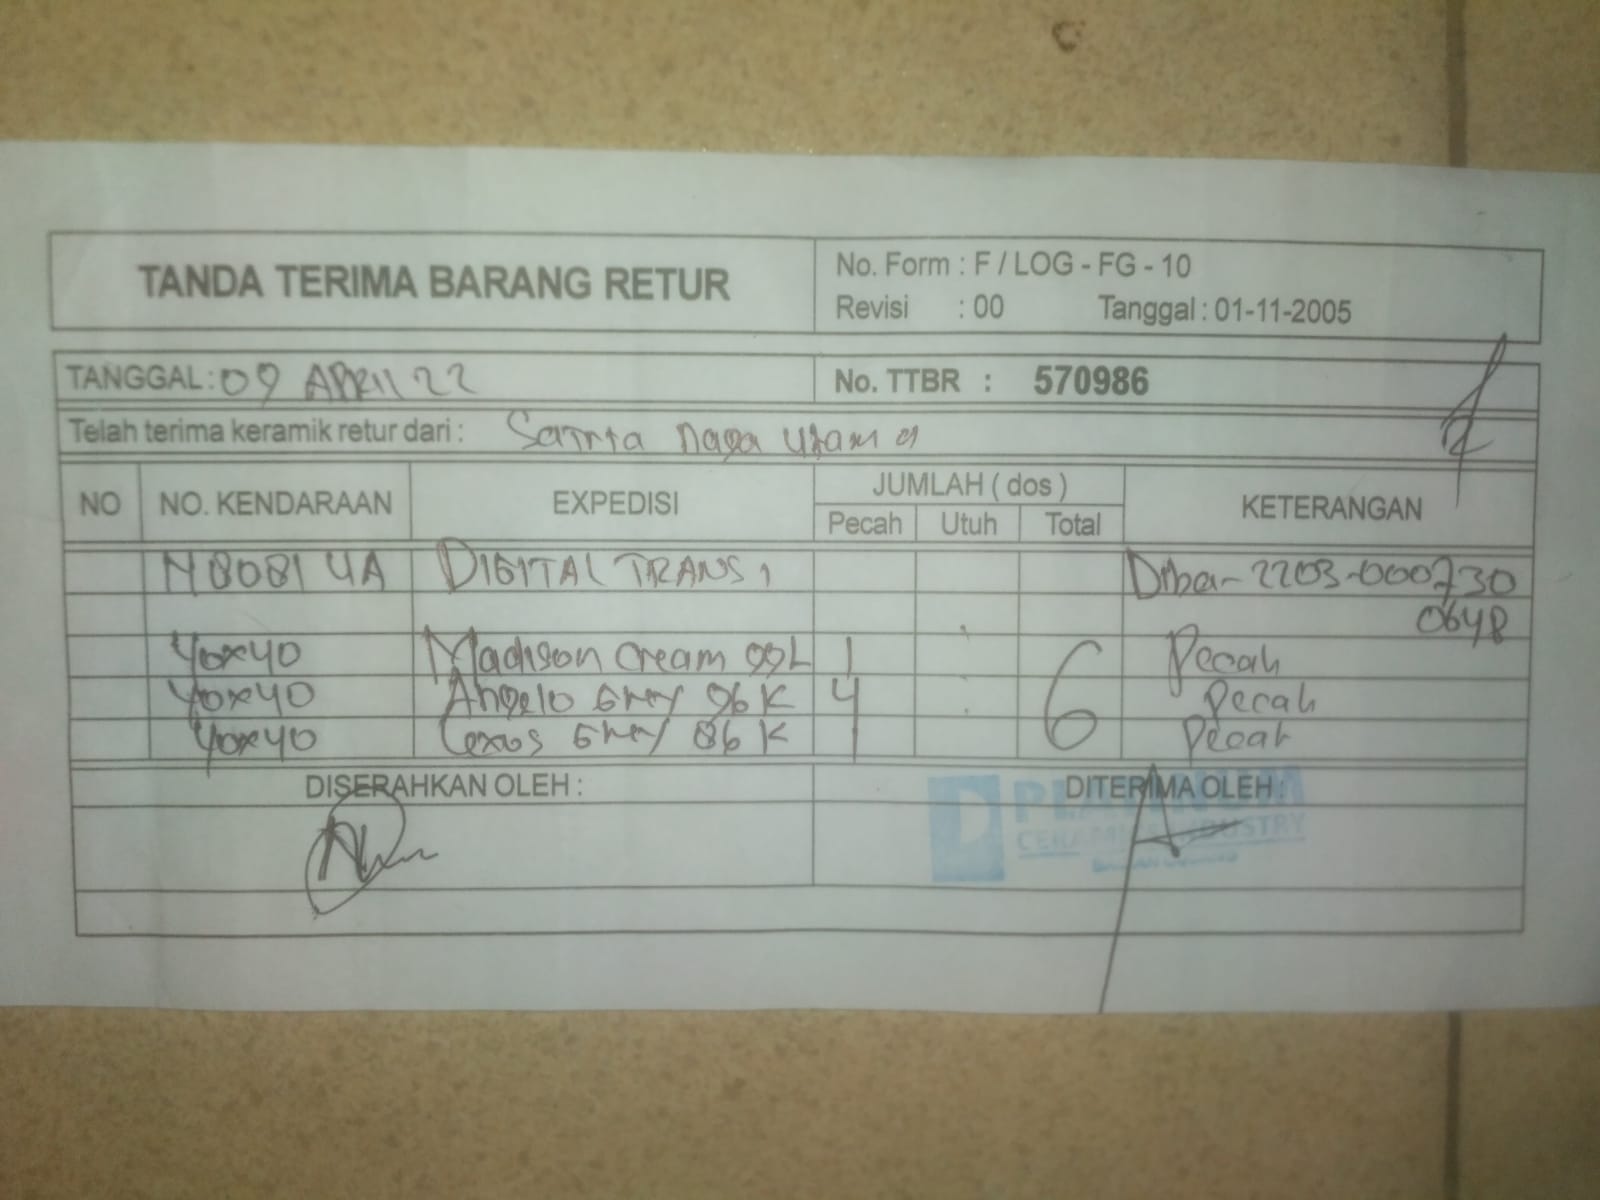 TANDA TERIMA BARANG RETUR
No. Form : F / LOG - FG - 10
Revisi : 00 Tanggal : 01-11-2005
TANGGAL : 09 APRIL 22
No. TTBR : 570986
Telah terima keramik retur dari : Satria naga utama
NO NO. KENDARAAN EXPEDISI JUMLAH ( dos ) KETERANGAN
Pecah Utuh Total
N 8081 UA DIGITAL TRANS 1 Drba-2203-000730
0648
40x40 Madison Cream 99L 1 6 Pecah
40x40 Angelo Grey 96 K 4 Pecah
40x40 Lexus Grey 86 K 1 Pecah
DISERAHKAN OLEH :
DITERIMA OLEH :
PLATINUM
CERAMICS INDUSTRY